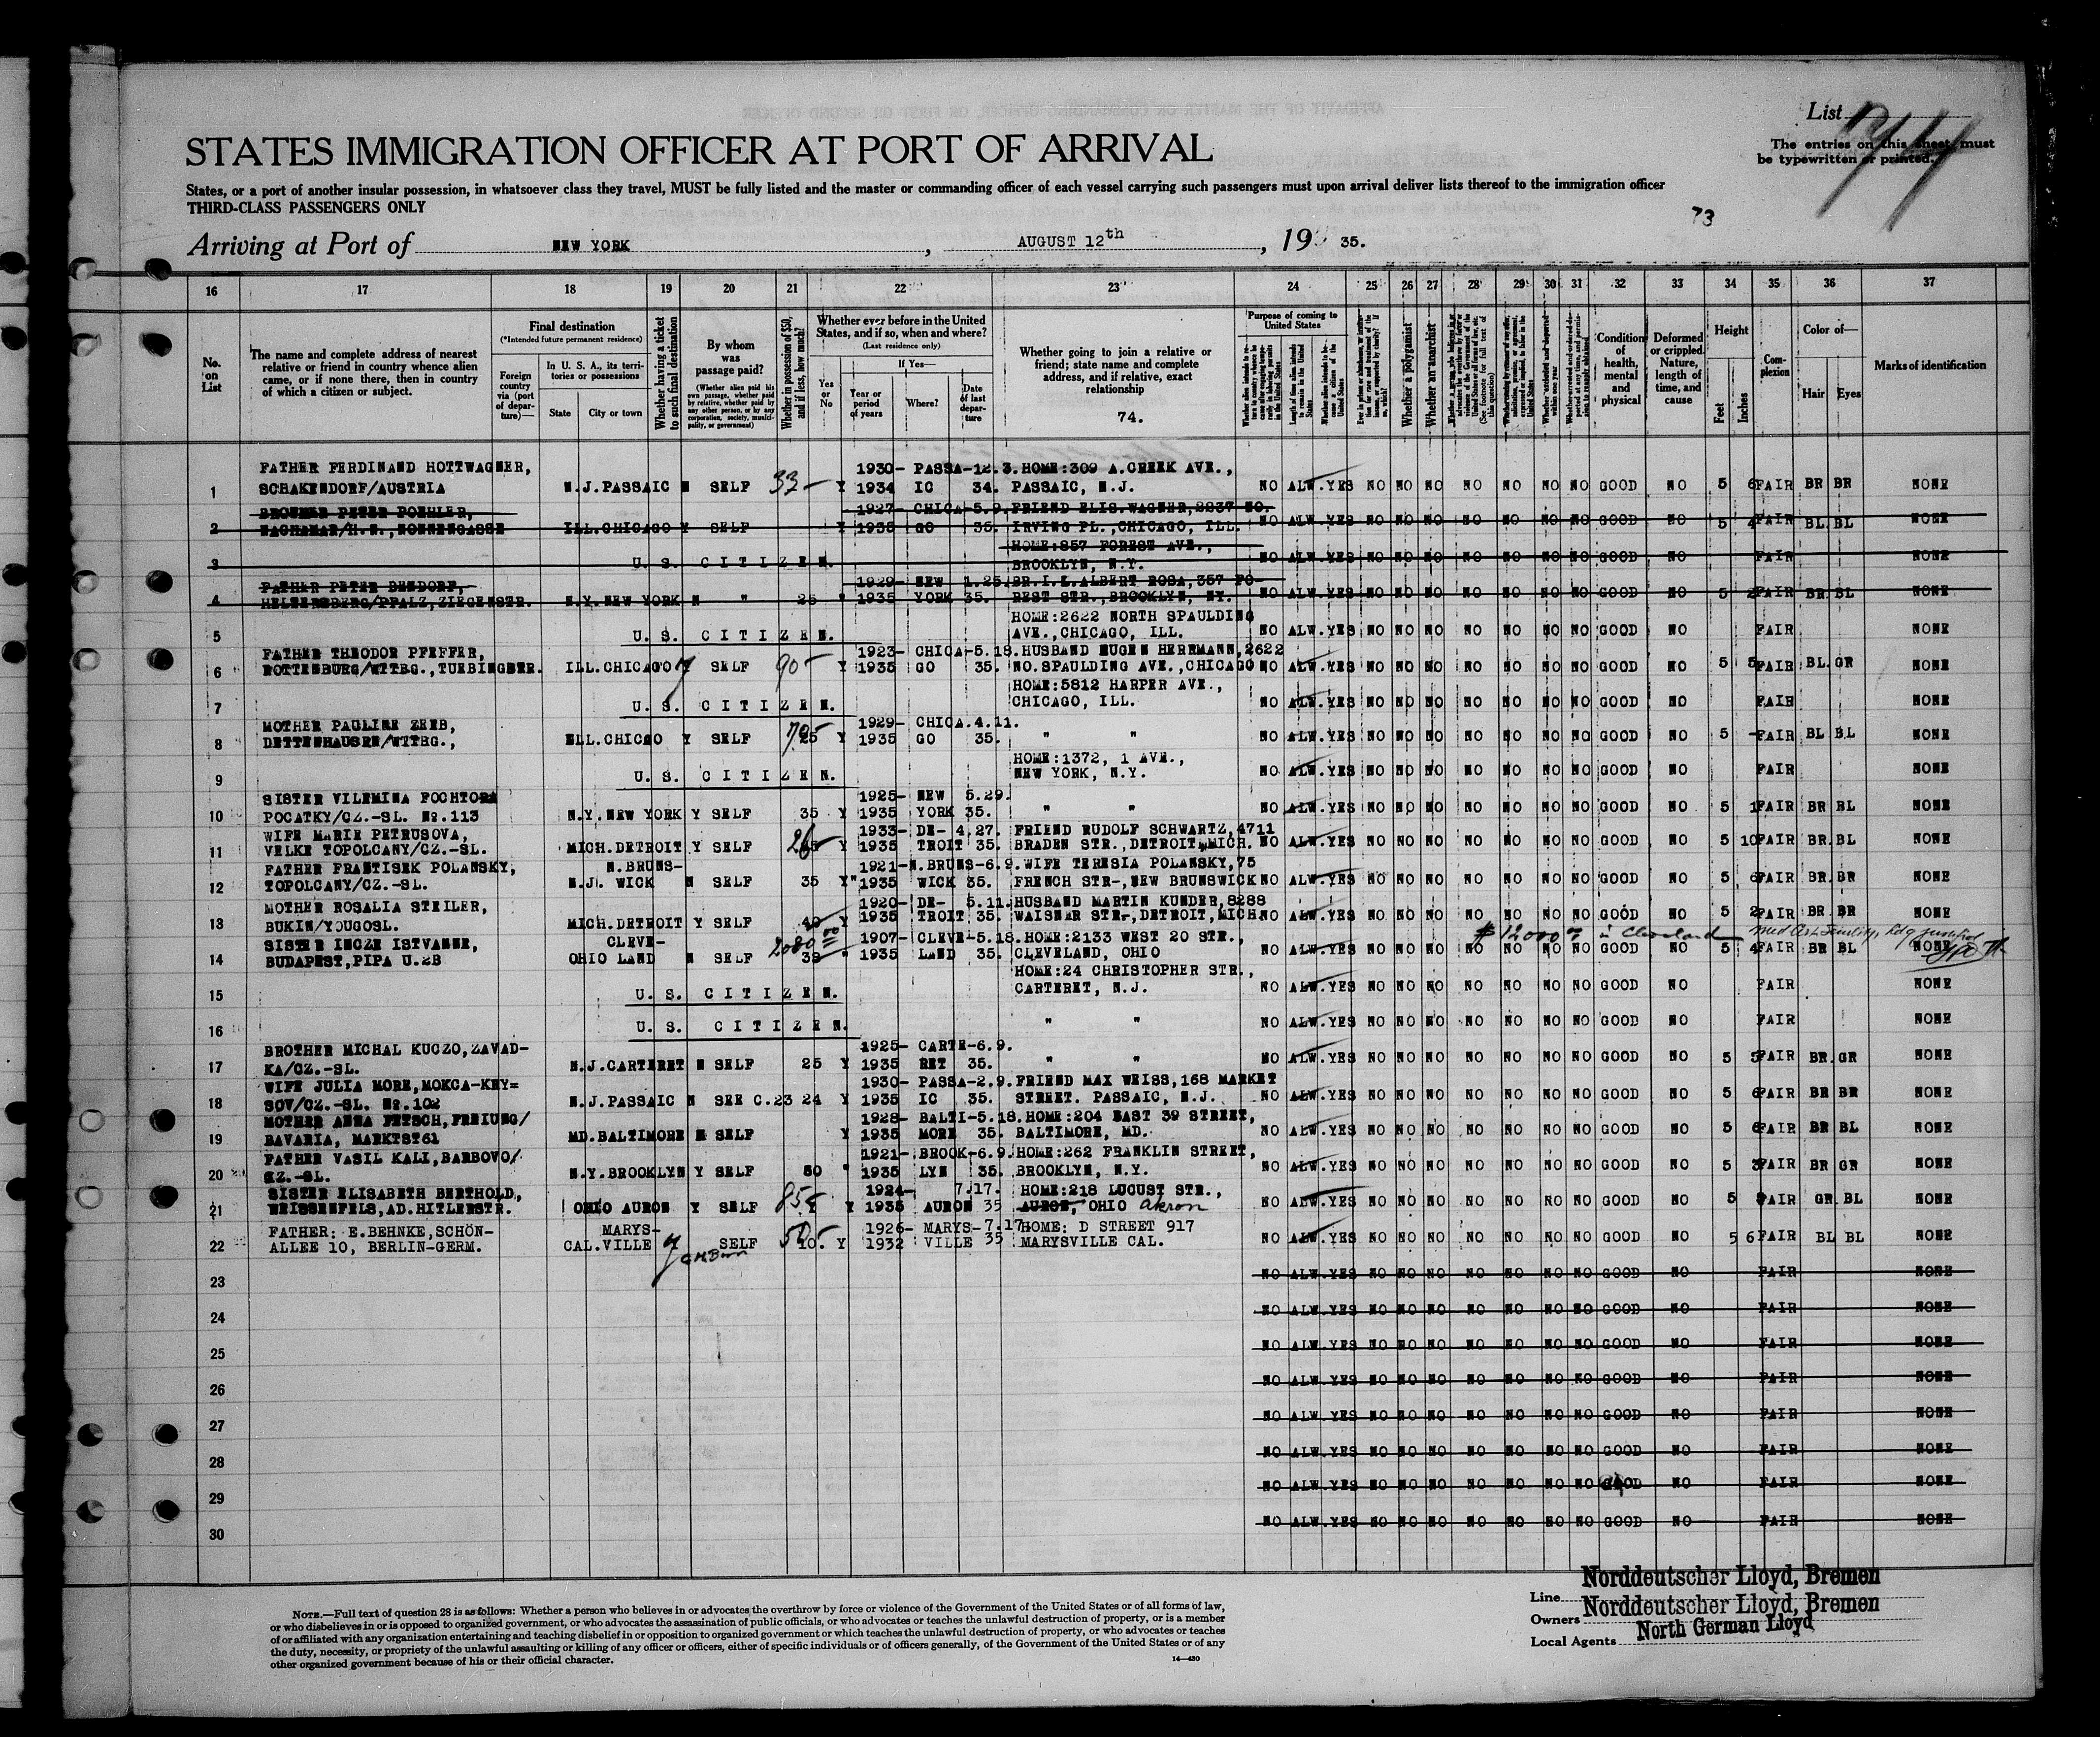 List
The entries on this sheet must
be typewritten or printed.
STATES IMMIGRATION OFFICER AT PORT OF ARRIVAL
States, or a port of another insular possession, in whatsoever class they travel, MUST be fully listed and the master or commanding officer of each vessel carrying such passengers must upon arrival deliver lists thereof to the immigration officer
THIRD-CLASS PASSENGERS ONLY
73
Arriving at Port of NEW YORK, AUGUST 12th, 19 35.
16 17 18 19 20 21 22 23 24 25 26 27 28 29 30 31 32 33 34 35 36 37
No. on List
The name and complete address of nearest relative or friend in country whence alien came, or if none there, then in country of which a citizen or subject.
Final destination
(*Intended future permanent residence)
Foreign country via (port of departure)—
In U. S. A., its territories or possessions
State City or town
Whether having a ticket to such final destination
By whom was passage paid?
(Whether alien paid his own passage, whether paid by relative, whether paid by any other person, or by any corporation, society, municipality, or government)
Whether in possession of $50, and if less, how much?
Whether ever before in the United States, and if so, when and where?
(Last residence only)
Yes or No
If Yes—
Year or period of years
Where?
Date of last departure
Whether going to join a relative or friend; state name and complete address, and if relative, exact relationship
74.
Purpose of coming to United States
Whether a polygamist
Whether an anarchist
Condition of health, mental and physical
Deformed or crippled. Nature, length of time, and cause
Height
Feet Inches
Complexion
Color of—
Hair Eyes
Marks of identification
FATHER FERDINAND HOTTWAGNER, 1930- PASSA-12.3. HOME:309 A.CREEK AVE.,
1 SCHAKENDORF/AUSTRIA N.J.PASSAIC N SELF 33- Y 1934 IC 34. PASSAIC, N.J. NO ALW.YES NO NO NO NO NO NO NO GOOD NO 5 6 FAIR BR BR NONE
BROTHER PETER POEHLER, 1927- CHICA-5.9. FRIEND ELIS.WAGNER,2237 NO.
2 WACHMAR/H.N.,NONNENGASSE ILL.CHICAGO Y SELF Y 1935 GO 35. IRVING PL.,CHICAGO, ILL. NO ALW.YES NO NO NO NO NO NO NO GOOD NO 5 4 FAIR BL BL NONE
HOME:857 FOREST AVE.,
3 U. S. CITIZEN. BROOKLYN, N.Y. NO ALW.YES NO NO NO NO NO NO NO GOOD NO FAIR NONE
FATHER PETER BENDORF, 1929- NEW 1.25. BR.I.L.ALBERT ROSA,357 FO-
4 HELMERSBERG/PFALZ,ZIEGENSTR. N.Y.NEW YORK N " 25 " 1935 YORK 35. REST STR.,BROOKLYN, NY. NO ALW.YES NO NO NO NO NO NO NO GOOD NO 5 2 FAIR BR BL NONE
HOME:2622 NORTH SPAULDING
5 U. S. CITIZEN. AVE.,CHICAGO, ILL. NO ALW.YES NO NO NO NO NO NO NO GOOD NO FAIR NONE
FATHER THEODOR PFEFFER, 1923- CHICA-5.18. HUSBAND EUGEN HERRMANN,2622
6 ROTTENBURG/WTTBG.,TUEBINGERR. ILL.CHICAGO Y SELF 90- Y 1935 GO 35. NO.SPAULDING AVE.,CHICAGO NO ALW.YES NO NO NO NO NO NO NO GOOD NO 5 5 FAIR BL.GR NONE
HOME:5812 HARPER AVE.,
7 U. S. CITIZEN. CHICAGO, ILL. NO ALW.YES NO NO NO NO NO NO NO GOOD NO FAIR NONE
MOTHER PAULINE ZEEB, 1929- CHICA.4.11.
8 DETTENHAUSEN/WTTBG., ILL.CHICGO Y SELF 25 Y 1935 GO 35. " " NO ALW.YES NO NO NO NO NO NO NO GOOD NO 5 - FAIR BL BL NONE
HOME:1372, 1 AVE.,
9 U. S. CITIZEN. NEW YORK, N.Y. NO ALW.YES NO NO NO NO NO NO NO GOOD NO FAIR NONE
SISTER VILEMINA POCHTORA 1925- NEW 5.29.
10 POCATKY/CZ.-SL. No.113 N.Y.NEW YORK Y SELF 35 Y 1935 YORK 35. " " NO ALW.YES NO NO NO NO NO NO NO GOOD NO 5 1 FAIR BR BL NONE
WIFE MARIE PETRUSOVA, 1933- DE- 4.27. FRIEND RUDOLF SCHWARTZ,4711
11 VELKE TOPOLCANY/CZ.-SL. MICH.DETROIT Y SELF 26- Y 1935 TROIT 35. BRADEN STR.,DETROIT,MICH. NO ALW.YES NO NO NO NO NO NO NO GOOD NO 5 10 FAIR BR.BL NONE
FATHER FRANTISEK POLANSKY, N.BRUNS- 1921- N.BRUNS-6.9. WIFE TERESIA POLANSKY,75
12 TOPOLCANY/CZ.-SL. N.J. WICK N SELF 35 Y" 1935 WICK 35. FRENCH STR-,NEW BRUNSWICK NO ALW.YES NO NO NO NO NO NO NO GOOD NO 5 6 FAIR BR.BR NONE
MOTHER ROSALIA STEILER, 1920- DE- 5.11. HUSBAND MARTIN KUNDER,8288
13 BUKIN/YOUGOSL. MICH.DETROIT Y SELF 40 Y 1935 TROIT 35. WAISNER STR-,DETROIT,MICH. NO ALW.YES NO NO NO NO NO NO NO GOOD NO 5 2 FAIR BR BR NONE
$12000 in Cleveland
SISTER INCZE ISTVANNE, CLEVE- 2080.00 1907- CLEVE-5.18. HOME:2133 WEST 20 STR.,
14 BUDAPEST,PIPA U.2B OHIO LAND N SELF 35 " 1935 LAND 35. CLEVELAND, OHIO NO ALW.YES NO NO NO NO NO NO NO GOOD NO 5 4 FAIR BR BL NONE
HOME:24 CHRISTOPHER STR.,
15 U. S. CITIZEN. CARTERET, N.J. NO ALW.YES NO NO NO NO NO NO NO GOOD NO FAIR NONE
16 U. S. CITIZEN. " " NO ALW.YES NO NO NO NO NO NO NO GOOD NO FAIR NONE
BROTHER MICHAL KUCZO,ZAVAD- 1925- CARTE-6.9.
17 KA/CZ.-SL. N.J.CARTERET N SELF 25 Y 1935 RET 35. " " NO ALW.YES NO NO NO NO NO NO NO GOOD NO 5 5 FAIR BR.GR NONE
WIFE JULIA MORE,MOKCA-KEY= 1930- PASSA-2.9. FRIEND MAX WEISS,168 MARKET
18 SOV/CZ.-SL. No.102 N.J.PASSAIC N SEE C.23 24 Y 1935 IC 35. STREET. PASSAIC, N.J. NO ALW.YES NO NO NO NO NO NO NO GOOD NO 5 6 FAIR BR BR NONE
MOTHER ANNA FETSCH,FREIUNG/ 1928- BALTI-5.18. HOME:204 EAST 39 STREET,
19 BAVARIA, MARKTST61 MD.BALTIMORE N SELF Y 1935 MORE 35. BALTIMORE, MD. NO ALW.YES NO NO NO NO NO NO NO GOOD NO 5 6 FAIR BR BL NONE
FATHER VASIL KALI,BARBOVO/ 1921- BROOK-6.9. HOME:262 FRANKLIN STREET,
20 CZ.-SL. N.Y.BROOKLYN Y SELF 50 " 1935 LYN 35. BROOKLYN, N.Y. NO ALW.YES NO NO NO NO NO NO NO GOOD NO 5 3 FAIR BR GR NONE
SISTER ELISABETH BERTHOLD, 1924- 7.17. HOME:218 LUCUST STR.,
21 WEISSENFELS,AD.HITLERSTR. OHIO AURON Y SELF 85- Y 1935 AURON 35 AURON, OHIO Akron NO ALW.YES NO NO NO NO NO NO NO GOOD NO 5 FAIR GR.BL NONE
FATHER: E.BEHNKE,SCHÖN- MARYS- 1926- MARYS-7.17. HOME: D STREET 917
22 ALLEE 10, BERLIN-GERM. CAL.VILLE Y SELF 50- Y 1932 VILLE 35 MARYSVILLE CAL. NO ALW.YES NO NO NO NO NO NO NO GOOD NO 5 6 FAIR BL BL NONE
23 NO ALW.YES NO NO NO NO NO NO NO GOOD NO FAIR NONE
24 NO ALW.YES NO NO NO NO NO NO NO GOOD NO FAIR NONE
25 NO ALW.YES NO NO NO NO NO NO NO GOOD NO FAIR NONE
26 NO ALW.YES NO NO NO NO NO NO NO GOOD NO FAIR NONE
27 NO ALW.YES NO NO NO NO NO NO NO GOOD NO FAIR NONE
28 NO ALW.YES NO NO NO NO NO NO NO GOOD NO FAIR NONE
29 NO ALW.YES NO NO NO NO NO NO NO GOOD NO FAIR NONE
30 NO ALW.YES NO NO NO NO NO NO NO GOOD NO FAIR NONE
Line Norddeutscher Lloyd, Bremen
Owners Norddeutscher Lloyd, Bremen
Local Agents North German Lloyd
NOTE.—Full text of question 28 is as follows: Whether a person who believes in or advocates the overthrow by force or violence of the Government of the United States or of all forms of law,
or who disbelieves in or is opposed to organized government, or who advocates the assassination of public officials, or who advocates or teaches the unlawful destruction of property, or is a member
of or affiliated with any organization entertaining and teaching disbelief in or opposition to organized government or which teaches the unlawful destruction of property, or who advocates or teaches
the duty, necessity, or propriety of the unlawful assaulting or killing of any officer or officers, either of specific individuals or of officers generally, of the Government of the United States or of any
other organized government because of his or their official character.
14—430